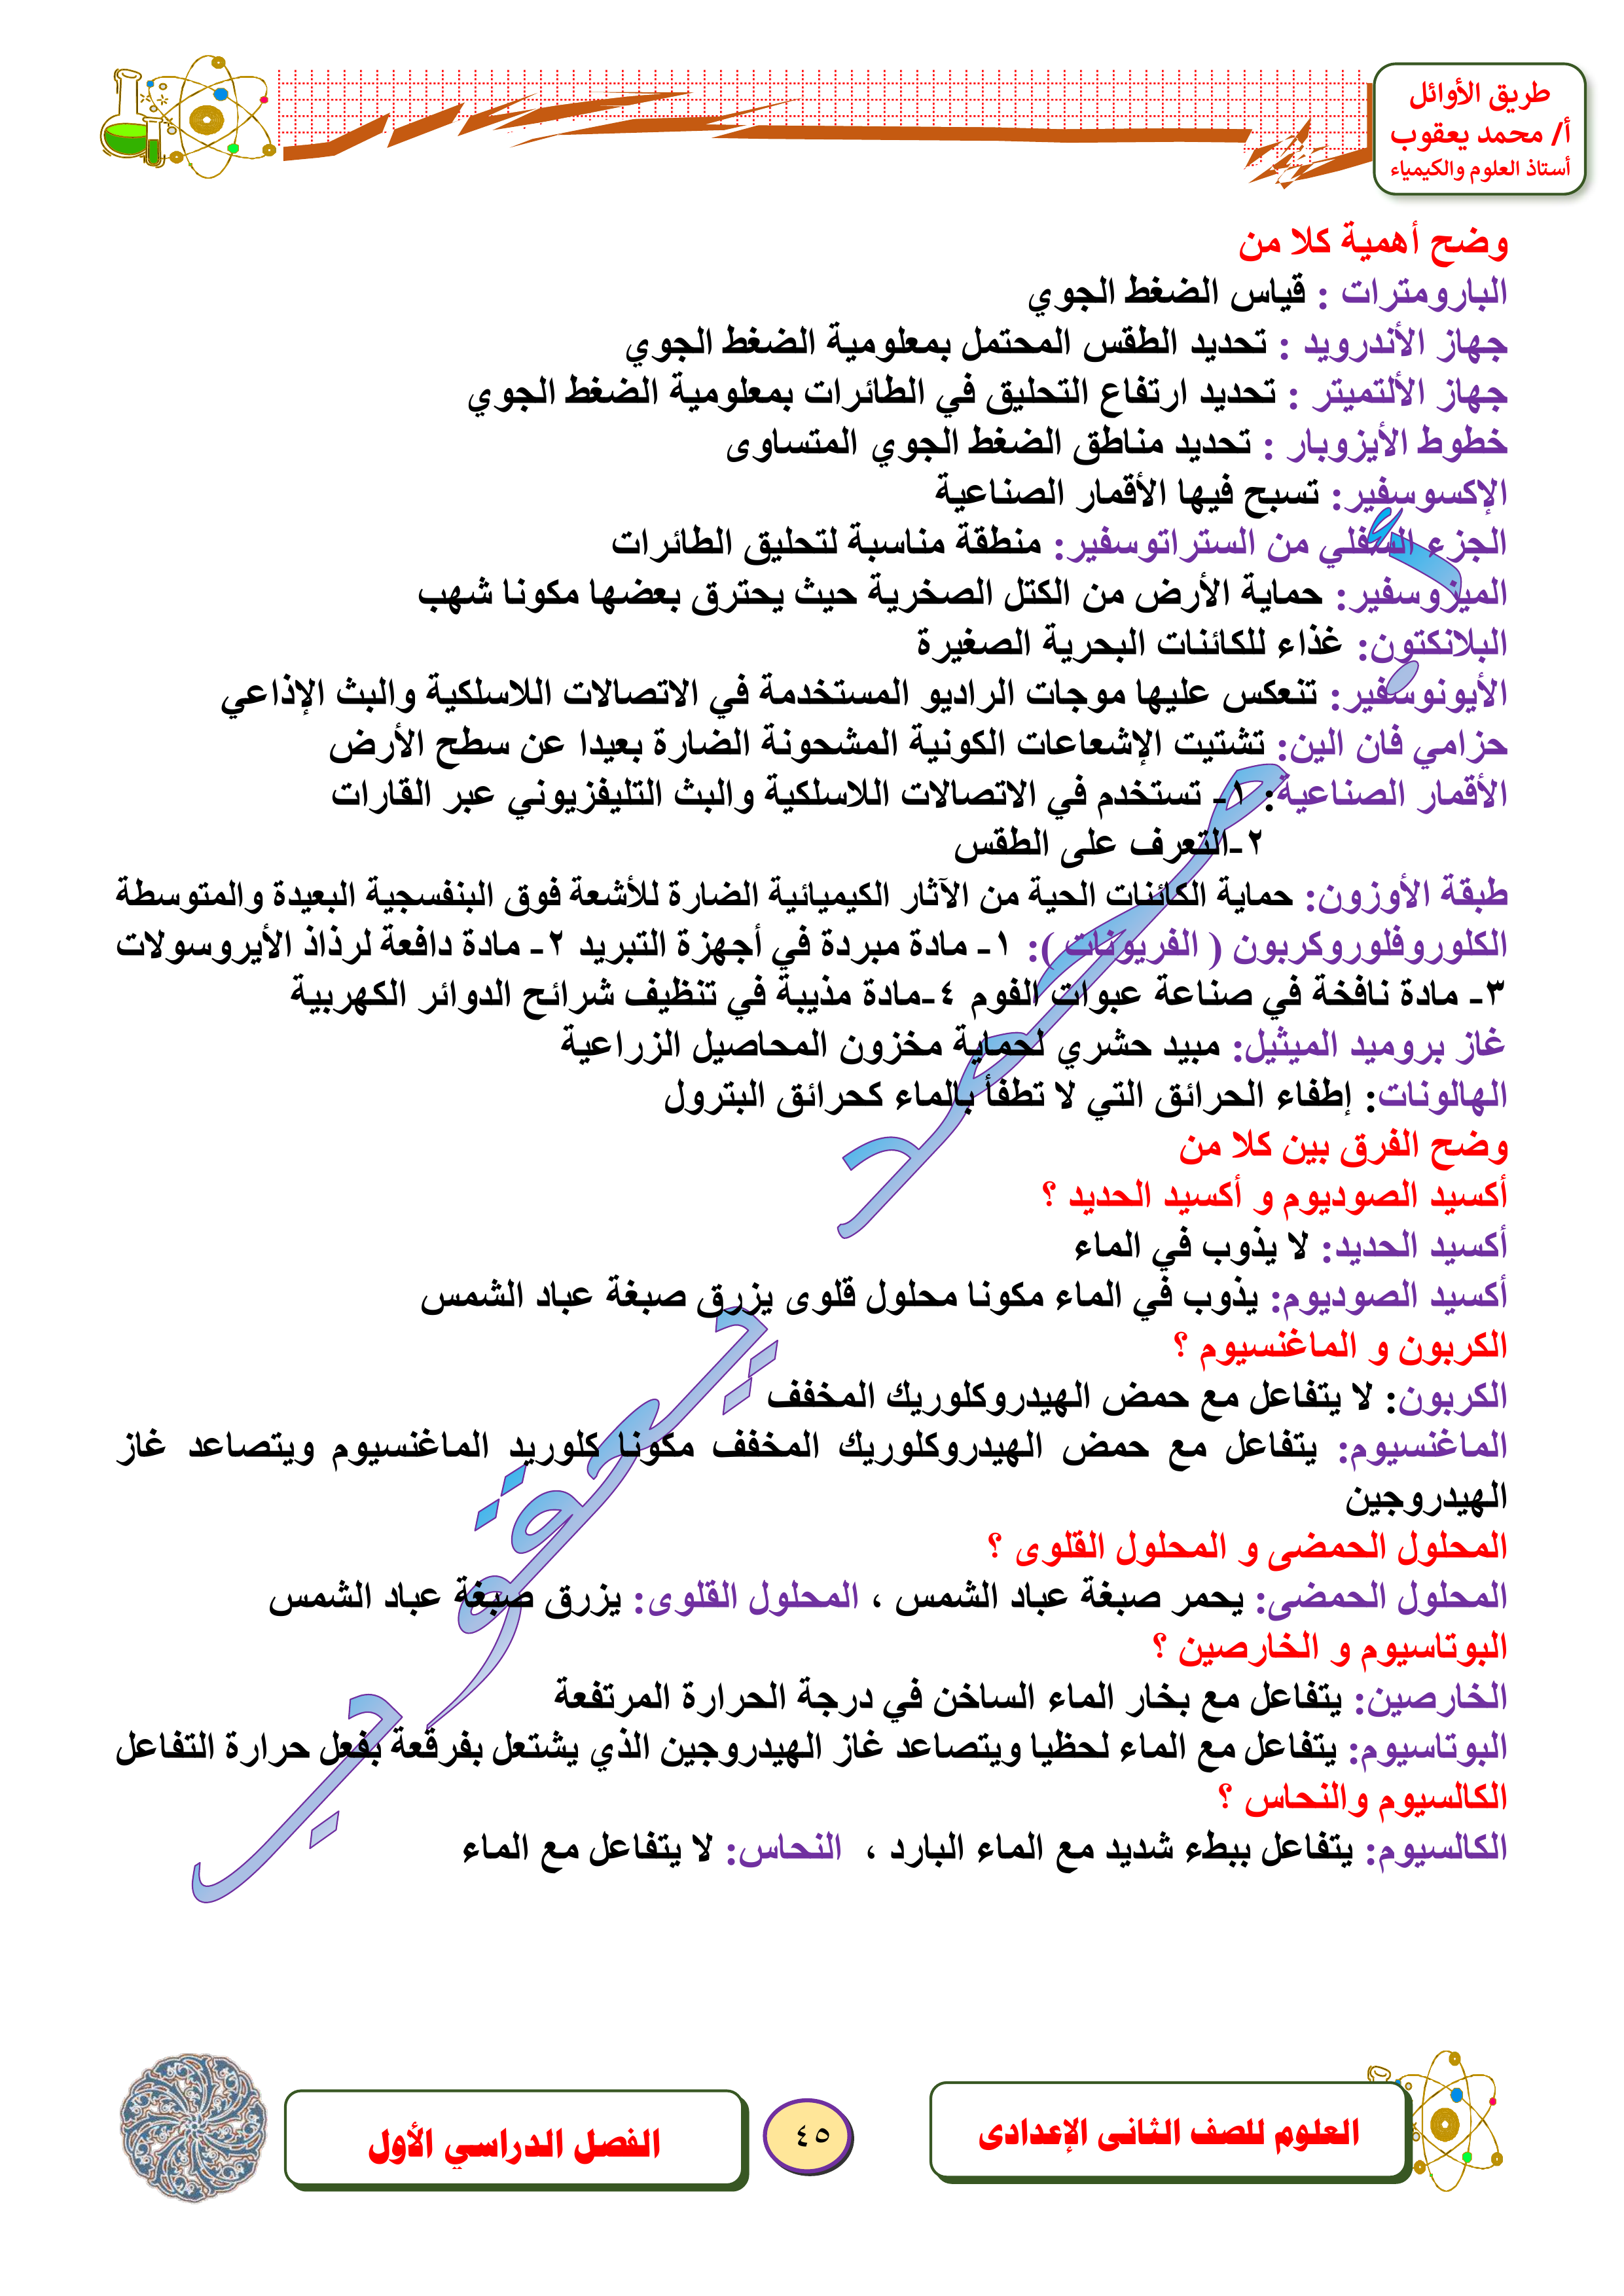 طريق الأوائل
أ/ محمد يعقوب
أستاذ العلوم والكيمياء
وضح أهمية كلا من
البارومترات : قياس الضغط الجوي
جهاز الأندرويد : تحديد الطقس المحتمل بمعلومية الضغط الجوي
جهاز الألتميتر : تحديد ارتفاع التحليق في الطائرات بمعلومية الضغط الجوي
خطوط الأيزوبار : تحديد مناطق الضغط الجوي المتساوى
الإكسوسفير: تسبح فيها الأقمار الصناعية
الجزء السفلي من الستراتوسفير: منطقة مناسبة لتحليق الطائرات
الميزوسفير: حماية الأرض من الكتل الصخرية حيث يحترق بعضها مكونا شهب
البلانكتون: غذاء للكائنات البحرية الصغيرة
الأيونوسفير: تنعكس عليها موجات الراديو المستخدمة في الاتصالات اللاسلكية والبث الإذاعي
حزامي فان الين: تشتيت الإشعاعات الكونية المشحونة الضارة بعيدا عن سطح الأرض
الأقمار الصناعية: ١- تستخدم في الاتصالات اللاسلكية والبث التليفزيوني عبر القارات
٢-التعرف على الطقس
طبقة الأوزون: حماية الكائنات الحية من الآثار الكيميائية الضارة للأشعة فوق البنفسجية البعيدة والمتوسطة
الكلوروفلوروكربون ( الفريونات ): ١- مادة مبردة في أجهزة التبريد ٢- مادة دافعة لرذاذ الأيروسولات
٣- مادة نافخة في صناعة عبوات الفوم ٤-مادة مذيبة في تنظيف شرائح الدوائر الكهربية
غاز بروميد الميثيل: مبيد حشري لحماية مخزون المحاصيل الزراعية
الهالونات: إطفاء الحرائق التي لا تطفأ بالماء كحرائق البترول
وضح الفرق بين كلا من
أكسيد الصوديوم و أكسيد الحديد ؟
أكسيد الحديد: لا يذوب في الماء
أكسيد الصوديوم: يذوب في الماء مكونا محلول قلوى يزرق صبغة عباد الشمس
الكربون و الماغنسيوم ؟
الكربون: لا يتفاعل مع حمض الهيدروكلوريك المخفف
الماغنسيوم: يتفاعل مع حمض الهيدروكلوريك المخفف مكونا كلوريد الماغنسيوم ويتصاعد غاز
الهيدروجين
المحلول الحمضى و المحلول القلوى ؟
المحلول الحمضى: يحمر صبغة عباد الشمس ، المحلول القلوى: يزرق صبغة عباد الشمس
البوتاسيوم و الخارصين ؟
الخارصين: يتفاعل مع بخار الماء الساخن في درجة الحرارة المرتفعة
البوتاسيوم: يتفاعل مع الماء لحظيا ويتصاعد غاز الهيدروجين الذي يشتعل بفرقعة بفعل حرارة التفاعل
الكالسيوم والنحاس ؟
الكالسيوم: يتفاعل ببطء شديد مع الماء البارد ، النحاس: لا يتفاعل مع الماء
أ. محمد يعقوب
العلوم للصف الثانى الإعدادى
٤٥
الفصل الدراسي الأول